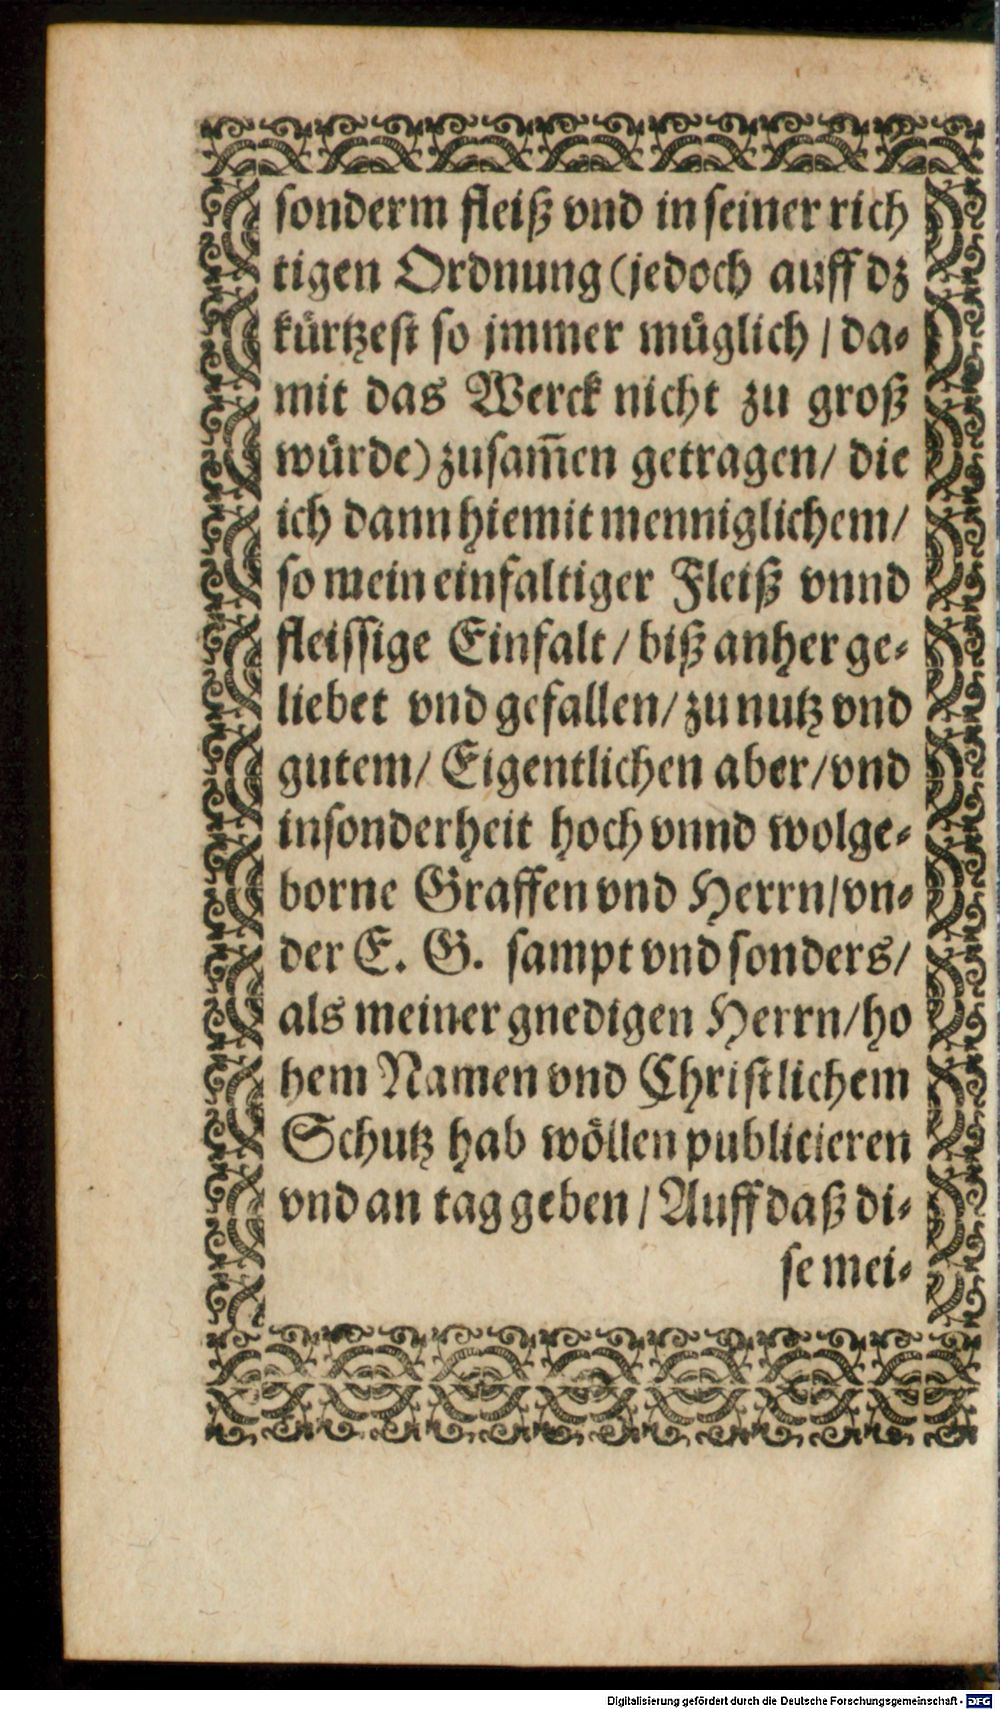 sonderm fleiß vnd in seiner rich
tigen Ordnung (jedoch auff dz
kürtzest so jmmer müglich / da-
mit das Werck nicht zu groß
würde) zusam̃en getragen / die
ich dann hiemit menniglichem /
so mein einfaltiger Fleiß vnnd
fleissige Einfalt / biß anher ge-
liebet vnd gefallen / zu nutz vnd
gutem / Eigentlichen aber / vnd
insonderheit hoch vnnd wolge-
borne Graffen vnd Herrn / vn-
der E. G. sampt vnd sonders /
als meiner gnedigen Herrn / ho
hem Namen vnd Christlichem
Schutz hab wöllen publicieren
vnd an tag geben / Auff daß di-
se mei-
Digitalisierung gefördert durch die Deutsche Forschungsgemeinschaft - DFG